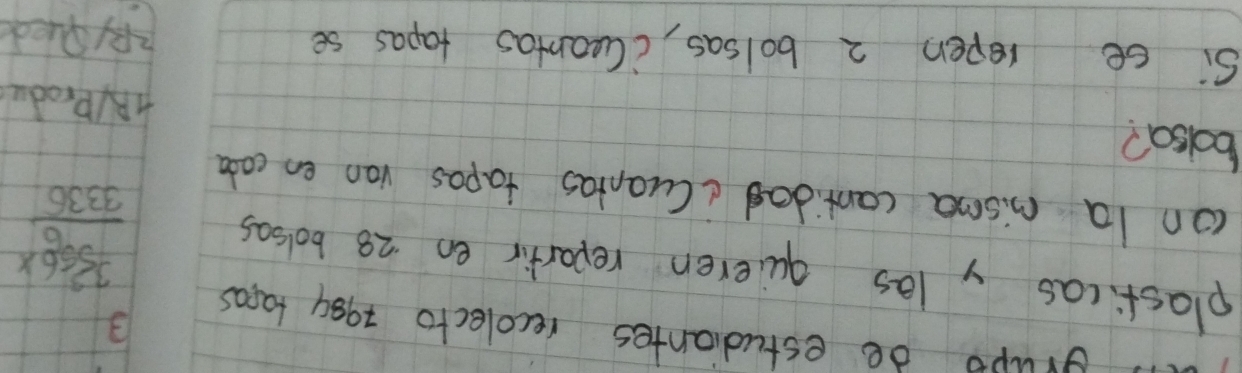 grupo de estudiantes recolecto 7984 tapas
plasticas y las quieren repartir en 28 bolsas
con la misma cantidad ¿Cuantas tapas van en cada
bolsa?
Si se repen 2 bolsas, ¿Cuantas tapas se
3
556x
6
3336
1R/Produ
2R/Qued